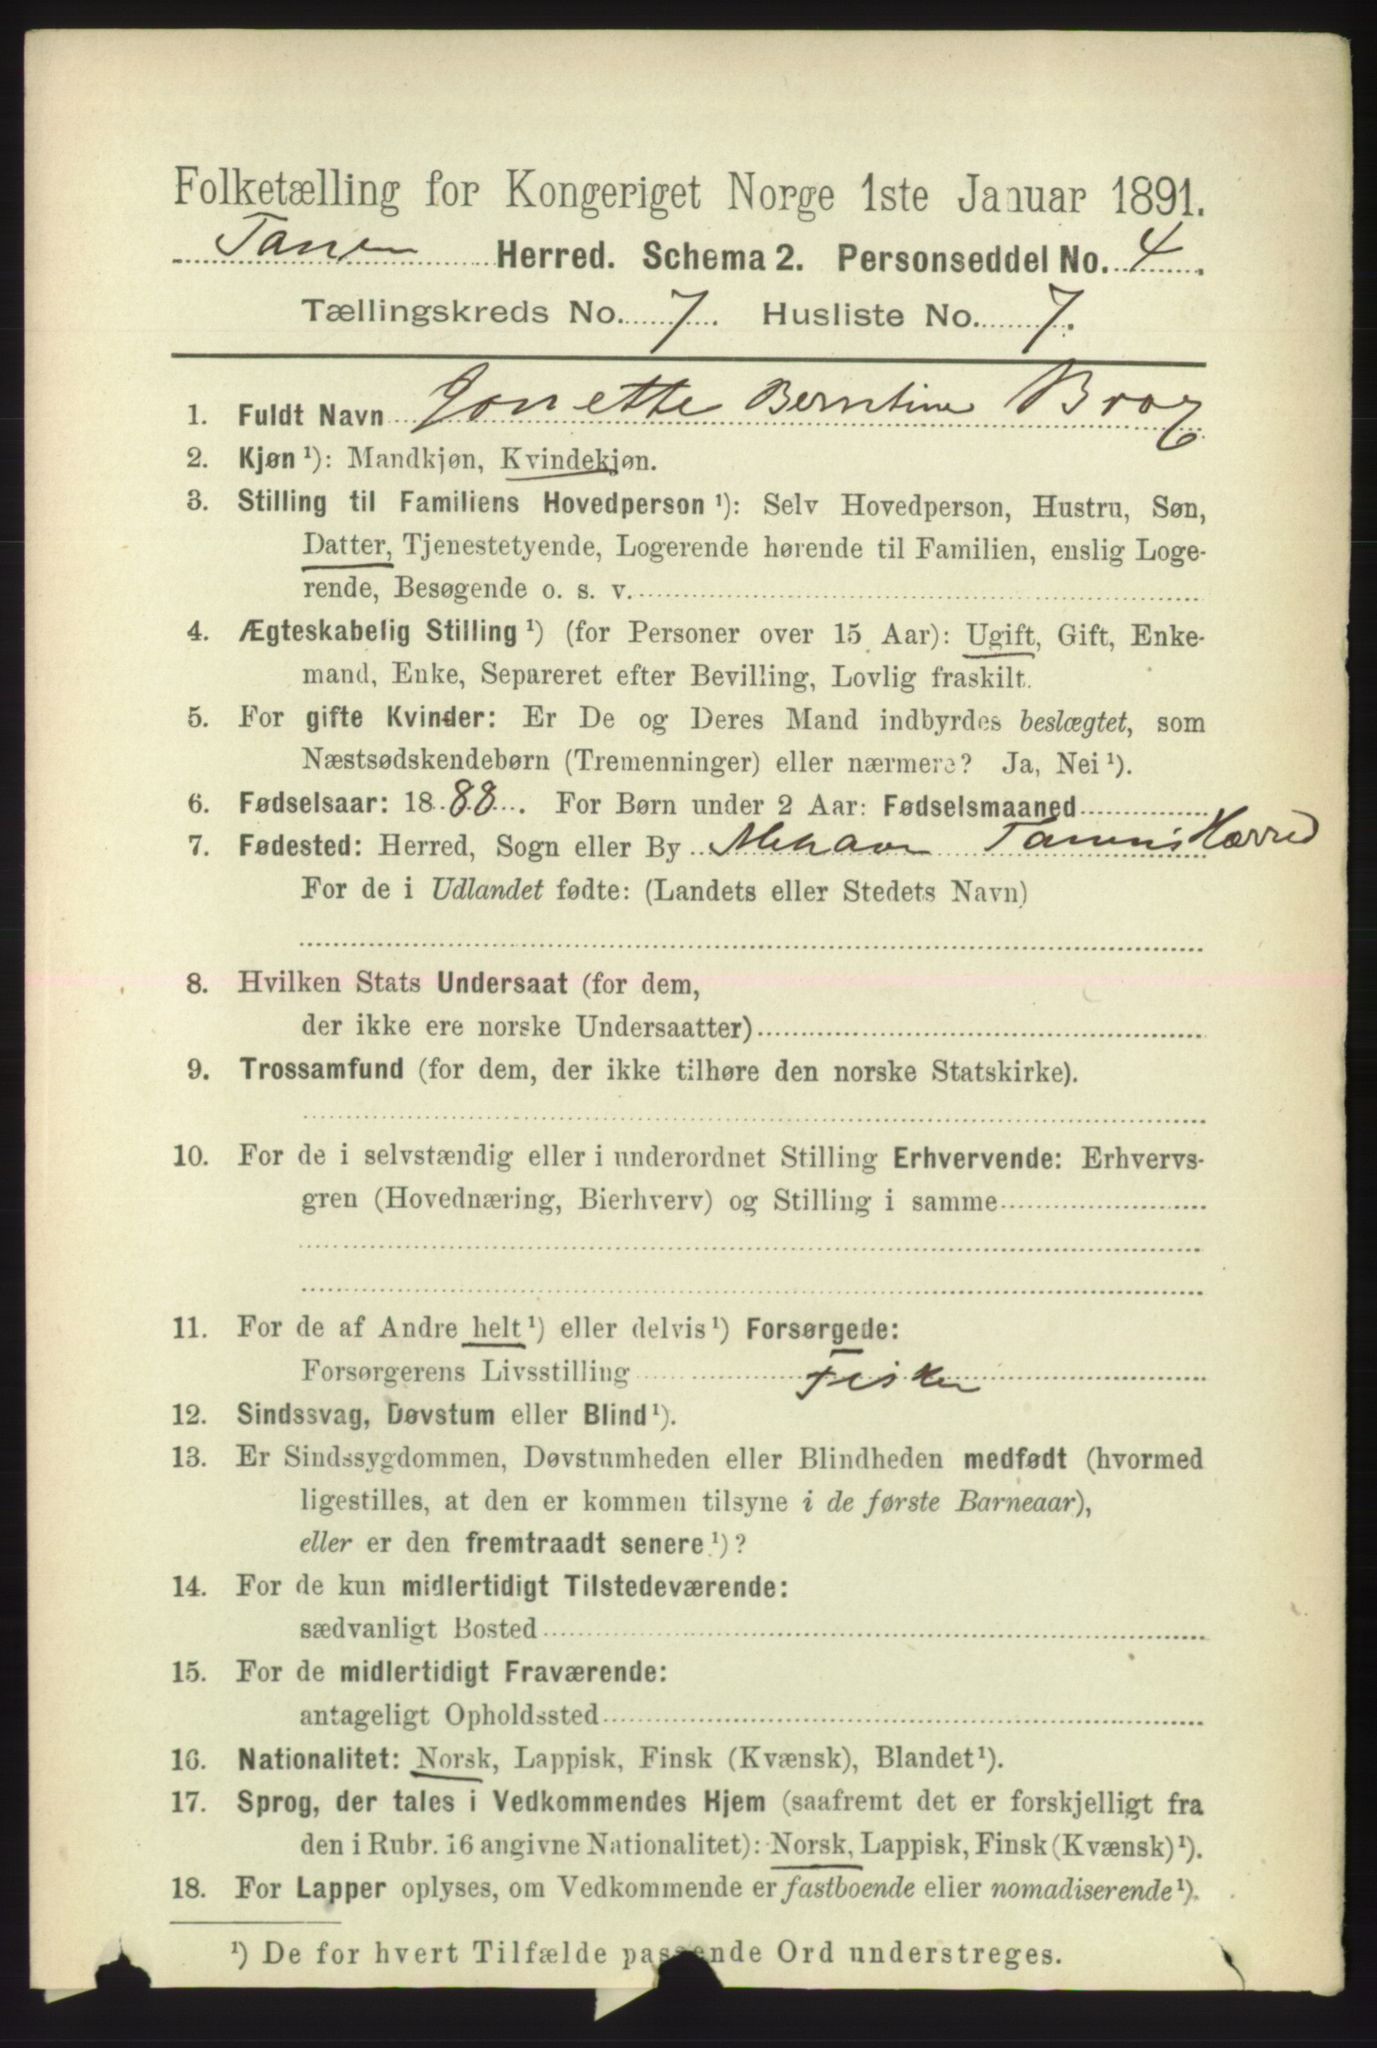 Folketælling for Kongeriget Norge 1ste Januar 1891.
Tanen Herred. Schema 2. Personseddel No. 4.
Tællingskreds No. 7. Husliste No. 7.
1. Fuldt Navn Jonette Berntine Brox
2. Kjøn ¹): Mandkjøn, Kvindekjøn.
3. Stilling til Familiens Hovedperson ¹): Selv Hovedperson, Hustru, Søn,
Datter, Tjenestetyende, Logerende hørende til Familien, enslig Loge-
rende, Besøgende o. s. v.
4. Ægteskabelig Stilling ¹) (for Personer over 15 Aar): Ugift, Gift, Enke-
mand, Enke, Separeret efter Bevilling, Lovlig fraskilt.
5. For gifte Kvinder: Er De og Deres Mand indbyrdes beslægtet, som
Næstsødskendebørn (Tremenninger) eller nærmere? Ja, Nei ¹).
6. Fødselsaar: 1888. For Børn under 2 Aar: Fødselsmaaned
7. Fødested: Herred, Sogn eller By Mehavn Tanens Herred
For de i Udlandet fødte: (Landets eller Stedets Navn)
8. Hvilken Stats Undersaat (for dem,
der ikke ere norske Undersaatter)
9. Trossamfund (for dem, der ikke tilhøre den norske Statskirke).
10. For de i selvstændig eller i underordnet Stilling Erhvervende: Erhvervs-
gren (Hovednæring, Bierhverv) og Stilling i samme
11. For de af Andre helt ¹) eller delvis ¹) Forsørgede:
Forsørgerens Livsstilling Fisker
12. Sindssvag, Døvstum eller Blind ¹).
13. Er Sindssygdommen, Døvstumheden eller Blindheden medfødt (hvormed
ligestilles, at den er kommen tilsyne i de første Barneaar),
eller er den fremtraadt senere ¹)?
14. For de kun midlertidigt Tilstedeværende:
sædvanligt Bosted
15. For de midlertidigt Fraværende:
antageligt Opholdssted
16. Nationalitet: Norsk, Lappisk, Finsk (Kvænsk), Blandet ¹).
17. Sprog, der tales i Vedkommendes Hjem (saafremt det er forskjelligt fra
den i Rubr. 16 angivne Nationalitet): Norsk, Lappisk, Finsk (Kvænsk) ¹).
18. For Lapper oplyses, om Vedkommende er fastboende eller nomadiserende ¹).
¹) De for hvert Tilfælde passende Ord understreges.